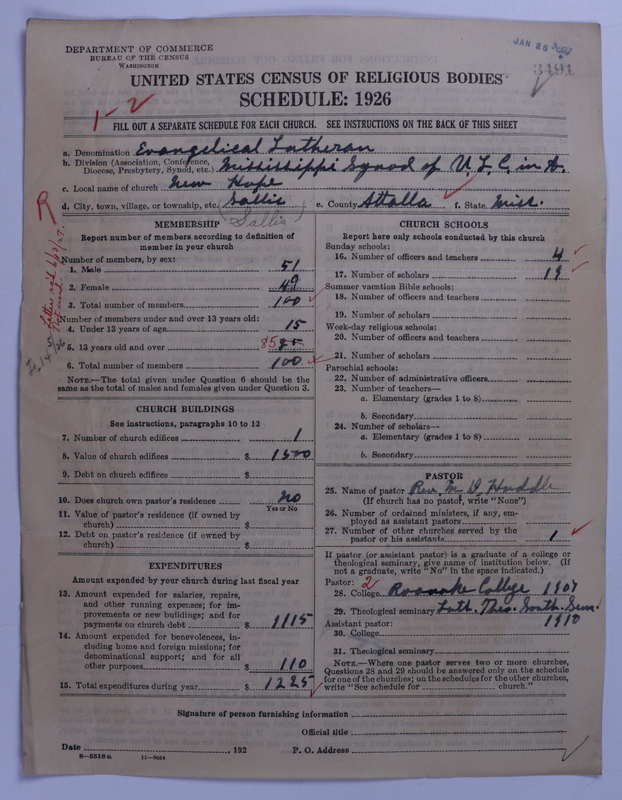 DEPARTMENT OF COMMERCE
BUREAU OF THE CENSUS
WASHINGTON
JAN 26 1927
3491
UNITED STATES CENSUS OF RELIGIOUS BODIES
SCHEDULE: 1926
1-2
FILL OUT A SEPARATE SCHEDULE FOR EACH CHURCH. SEE INSTRUCTIONS ON THE BACK OF THIS SHEET
a. Denomination Evangelical Lutheran
b. Division (Association, Conference, Diocese, Presbytery, Synod, etc.) Mississippi Synod of U. L. C. in A.
c. Local name of church New Hope
d. City, town, village, or township, etc. Sallis e. County Attalla f. State Miss.
(Sallis)
R
MEMBERSHIP
Report number of members according to definition of
member in your church
Number of members, by sex:
1. Male 51
2. Female 49
3. Total number of members 100
Number of members under and over 13 years old:
4. Under 13 years of age 15
5. 13 years old and over 85 85
6. Total number of members 100
NOTE.—The total given under Question 6 should be the
same as the total of males and females given under Question 3.
CHURCH BUILDINGS
See instructions, paragraphs 10 to 12
7. Number of church edifices 1
8. Value of church edifices $ 1500
9. Debt on church edifices $
10. Does church own pastor's residence No
Yes or No
11. Value of pastor's residence (if owned by
church) $
12. Debt on pastor's residence (if owned by
church) $
EXPENDITURES
Amount expended by your church during last fiscal year
13. Amount expended for salaries, repairs,
and other running expenses; for im-
provements or new buildings; and for
payments on church debt $ 1115
14. Amount expended for benevolences, in-
cluding home and foreign missions; for
denominational support; and for all
other purposes $ 110
15. Total expenditures during year $ 1225
CHURCH SCHOOLS
Report here only schools conducted by this church
Sunday schools:
16. Number of officers and teachers 4
17. Number of scholars 19
Summer vacation Bible schools:
18. Number of officers and teachers
19. Number of scholars
Week-day religious schools:
20. Number of officers and teachers
21. Number of scholars
Parochial schools:
22. Number of administrative officers
23. Number of teachers—
a. Elementary (grades 1 to 8)
b. Secondary
24. Number of scholars—
a. Elementary (grades 1 to 8)
b. Secondary
PASTOR
25. Name of pastor Rev. M. D. Huddle
(If church has no pastor, write "None")
26. Number of ordained ministers, if any, em-
ployed as assistant pastors
27. Number of other churches served by the
pastor or his assistants 1
If pastor (or assistant pastor) is a graduate of a college or
theological seminary, give name of institution below. (If
not a graduate, write "No" in the space indicated.)
Pastor: 2
28. College Roanoke College 1907
29. Theological seminary Luth. Theo. South. Sem.
Assistant pastor: 1910
30. College
31. Theological seminary
NOTE.—Where one pastor serves two or more churches,
Questions 28 and 29 should be answered only on the schedule
for one of the churches; on the schedules for the other churches,
write "See schedule for church."
Signature of person furnishing information
Official title
Date , 192 P. O. Address
8-5518a 11-9054